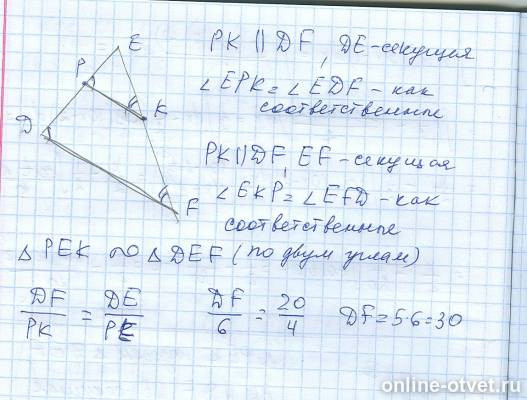 E
P
K
D
F
PK || DF, DE-секущая
∠EPK = ∠EDF - как
соответственные
PK || DF, EF-секущая
∠EKP = ∠EFD - как
соответственные
△ PEK ∾ △ DEF (по двум углам)
DF/PK = DE/PE DF/6 = 20/4 DF = 5·6 = 30
online-otvet.ru